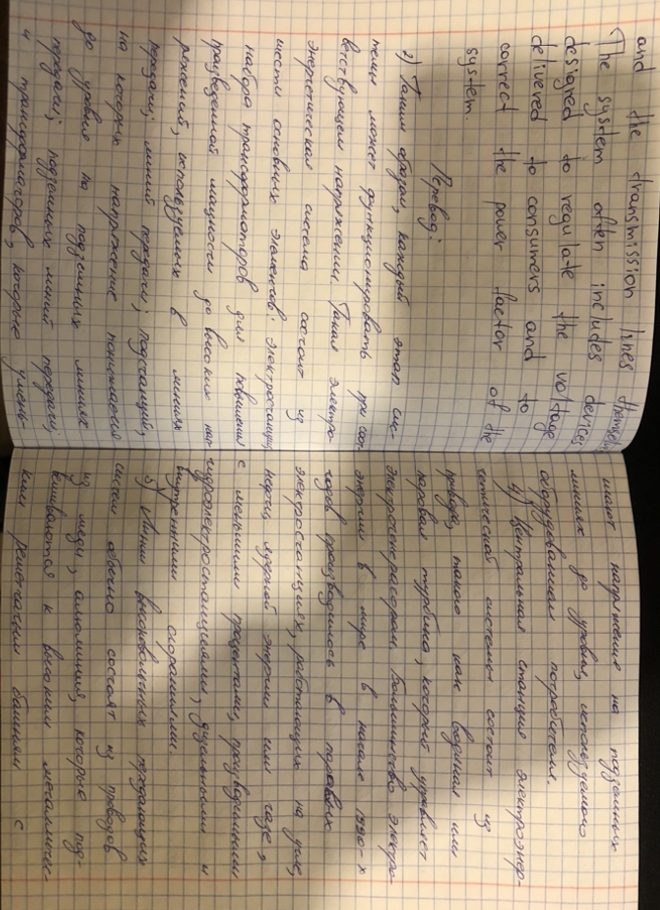 and the transmission lines themselv
(The system often includes devices
designed to regulate the voltage
delivered to consumers and to
correct the power factor of the
system.
Перевод:
2) Таким образом, каждый этап сис-
темы может функционировать при соот-
ветствующем напряжении. Такая электро-
энергетическая система состоит из
шести основных элементов: электростанции
набора трансформаторов для повышения
произведенной мощности до высоких нап-
ряжений, используемых в линиях
передачи; линий передачи; подстанций,
на которых напряжение понижается
до уровня на подземных линиях
передачи; подземных линий передачи;
и трансформаторов, которые умень-
шают напряжение на подземных
линиях до уровня, используемого
оборудованием потребителя.
4) Центральная станция электроэнер-
гетической системы состоит из
привода, такого как водяная или
паровая турбина, который управляет
электрогенератором. Большинство электро-
энергии в мире в начале 1990-х
годов производилось в паровых
электростанциях, работающих на угле,
нефти, ядерной энергии или газе,
с меньшими процентами, произведенными
гидроэлектростанциями, дизельными и
внутренними сгораниями.
5) Линии высоковольтных передающих
систем обычно состоят из проводов
из меди, алюминия, которые под-
вешиваются к высоким металличес-
ким решетчатым башням с